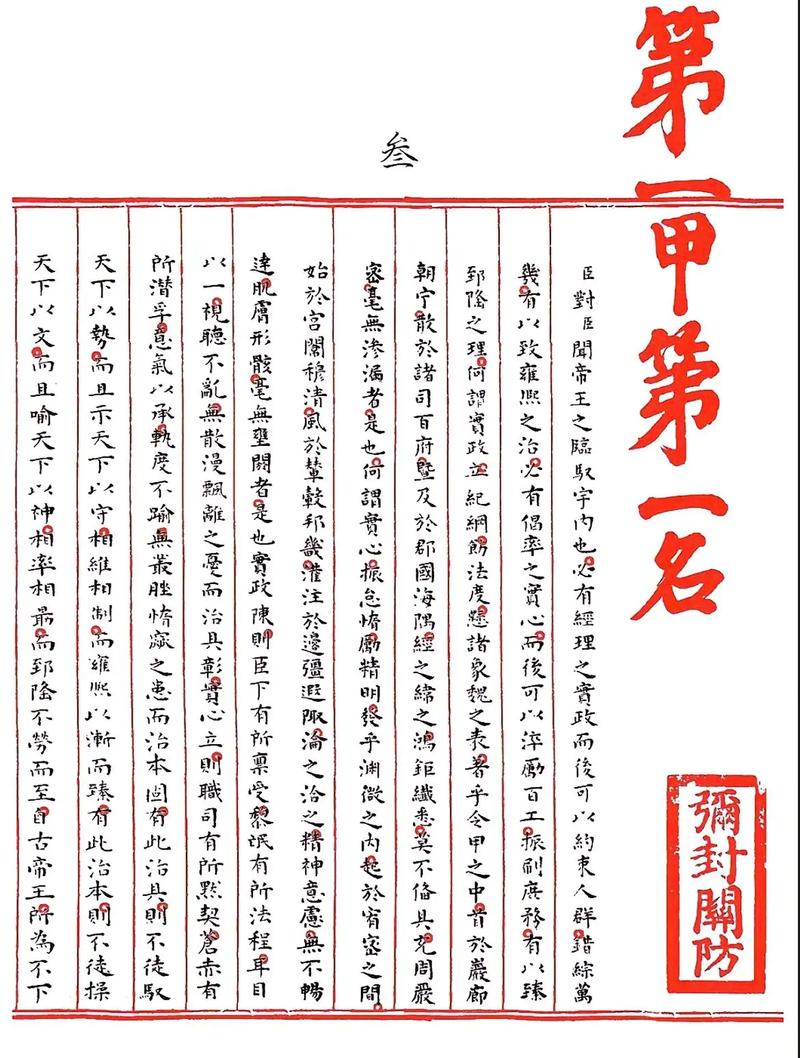 第一甲第一名
彌封關防
叁
臣對臣聞帝王之臨馭宇內也必有經理之實政而後可以約束人群錯綜萬
幾有以致雍熙之治必有倡率之實心而後可以淬勵百工振刷庶務有以臻
郅隆之理何謂實政立紀綱飭法度懸諸象魏之表著乎令甲之中首於巖廊
朝宁散於諸司百府暨及於郡國海隅經之緯之鴻鉅纖悉莫不俻具充周嚴
密毫無滲漏者是也何謂實心振怠惰勵精明發乎淵微之內起於宥密之間
始於宮闈穆清風於輦轂邦畿灌注於邊疆遐陬淪之洽之精神意慮無不暢
達肌膚形骸毫無壅閼者是也實政陳則臣下有所稟受黎氓有所法程耳目
以一視聽不亂無散漫飄離之憂而治具彰實心立則職司有所默契蒼赤有
所潛孚意氣以承軌度不踰無叢脞惰窳之患而治本固有此治具則不徒馭
天下以勢而且示天下以守相維相制而雍熙以漸而臻有此治本則不徒操
天下以文而且喻天下以神相率相最而郅隆不勞而至自古帝王所為不下